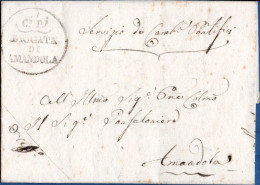 BRIGATA
DI
AMANDOLA
Servizio de Carabi Pontifici
All' Illmo Sigr Pne Colmo
Il Sigr Gonfaloniere
Amandola